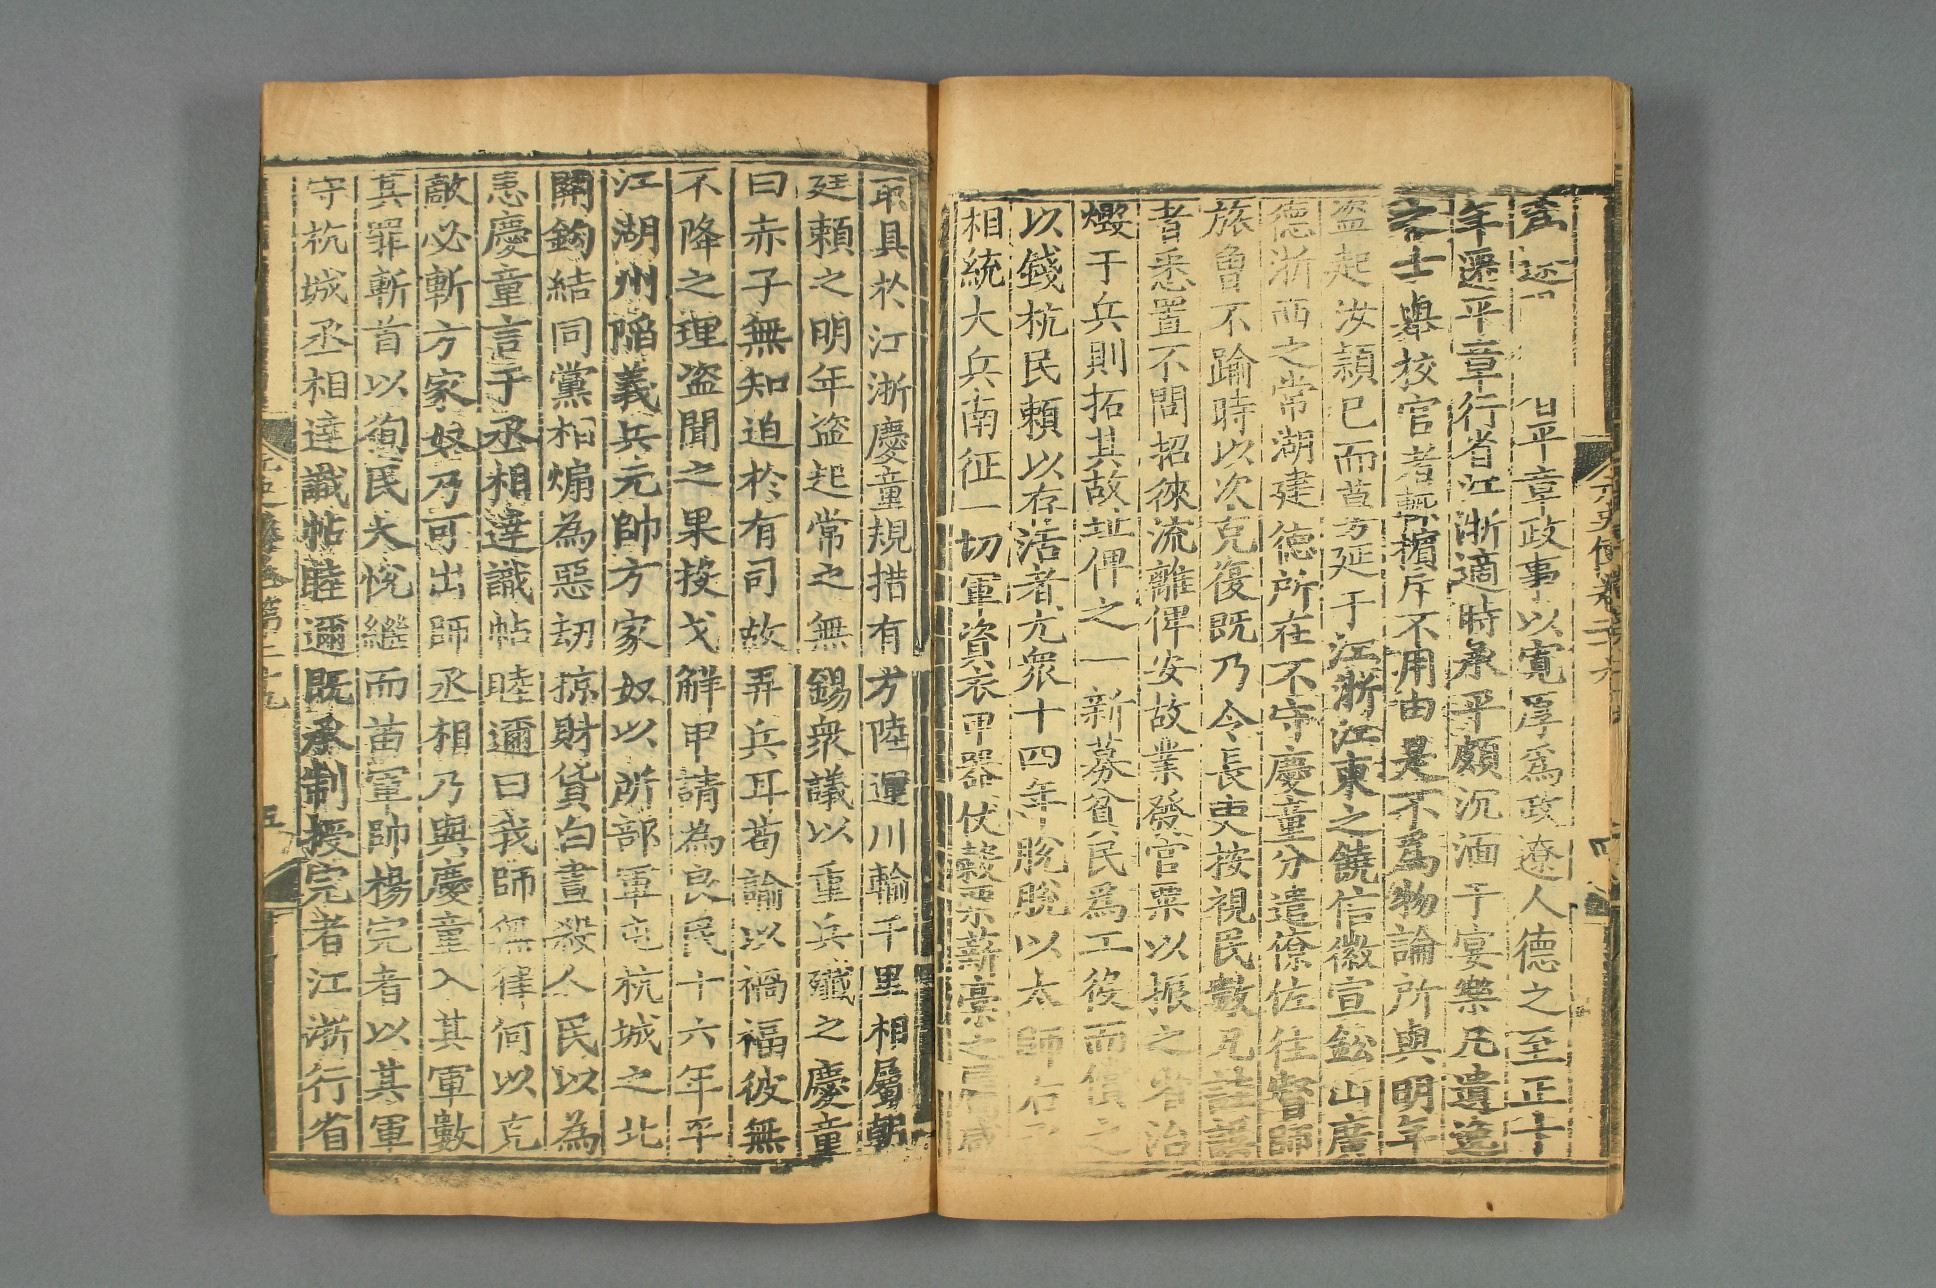 平章政事以寬厚爲政遼人德之至正十
年遷平章行省江浙適時承平頗沉湎于宴樂凡遺逸
之士舉校官者輒擯斥不用由是不爲物論所與明年
盜起汝潁已而蔓延于江浙江東之饒信徽宣鉛山廣
德浙西之常湖建德所在不守慶童分遣僚佐往督師
旅曾不踰時以次克復既乃令長吏按視民數凡詿誤
者悉置不問招徠流離俾安故業發官粟以振之省治
燬于兵則拓其故址俾之一新募貧民爲工役而償之
以錢杭民賴以存活者尤眾十四年脫脫以太師右
相統大兵南征一切軍資衣甲器仗穀粟薪藁之屬咸
取具於江浙慶童規措有方陸運川輸千里相屬朝
廷賴之明年盜起常之無錫衆議以重兵殲之慶童
曰赤子無知迫於有司故弄兵耳苟諭以禍福彼無
不降之理盜聞之果投戈解甲請為良民十六年平
江湖州陷義兵元帥方家奴以所部軍屯杭城之北
關鈎結同黨相煽為惡劫掠財貨白晝殺人民以為
患慶童言于丞相達識帖睦邇曰我師無律何以克
敵必斬方家奴乃可出師丞相乃與慶童入其軍數
其罪斬首以徇民大悅繼而苗軍帥楊完者以其軍
守杭城丞相達識帖睦邇既承制授完者江浙行省
第二十九
五